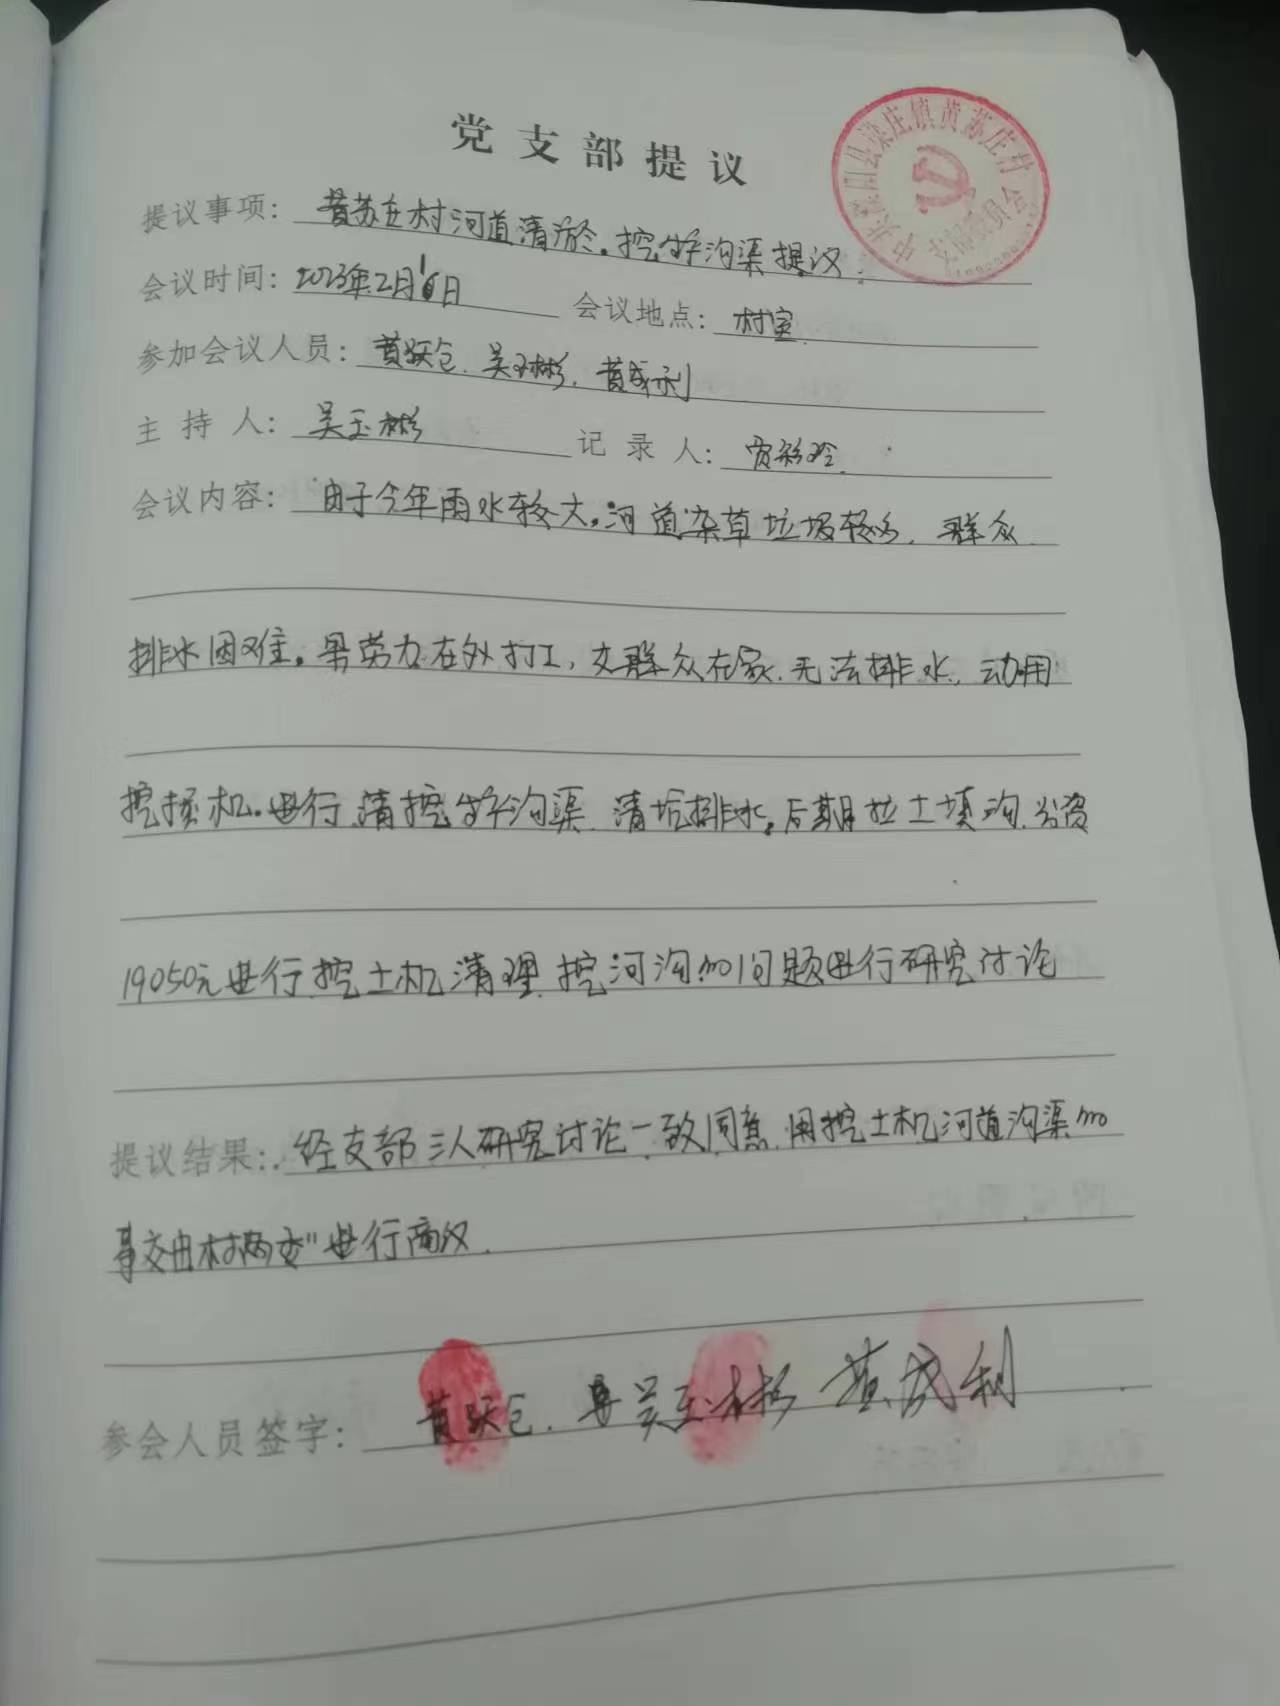 党支部提议
提议事项：黄苏庄村河道清淤。挖 沟渠提议.
会议时间：2023年2月16日 会议地点：村室
参加会议人员：黄跃仓.吴玉彬.黄成利
主持人：吴玉彬 记录人：彩玲.
会议内容：由于今年雨水较大。河道杂草垃圾较多.群众
排水困难。男劳力在外打工,女群众在家.无法排水.动用
挖掘机.进行清挖 沟渠.清坑排水。后期拉土填沟.
19050元进行挖土机清理.挖河沟的问题进行研究讨论
提议结果：经支部三人研究讨论一致同意.用挖土机河道沟渠的
事交由村两委"进行商议.
参会人员签字：黄跃仓. 吴玉彬 黄成利
梁庄镇黄苏庄村
支部委员会